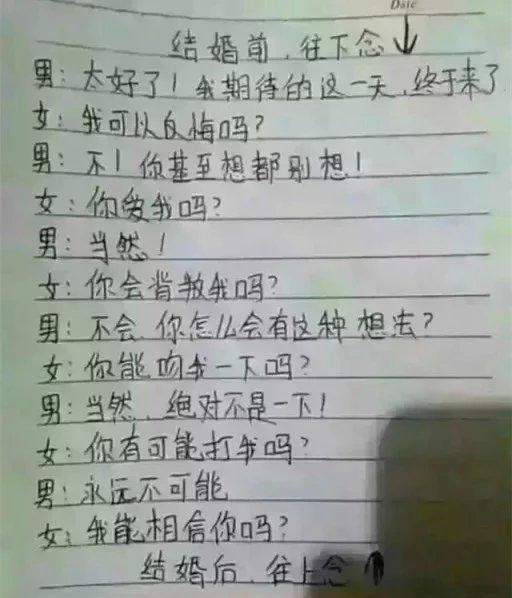 Date
结婚前.往下念↓
男:太好了!我期待的这一天.终于来了
女:我可以反悔吗?
男:不!你甚至想都别想!
女:你爱我吗?
男:当然!
女:你会背叛我吗?
男:不会.你怎么会有这种想法?
女:你能吻我一下吗?
男:当然.绝对不是一下!
女:你有可能打我吗?
男:永远不可能
女:我能相信你吗?
结婚后.往上念↑